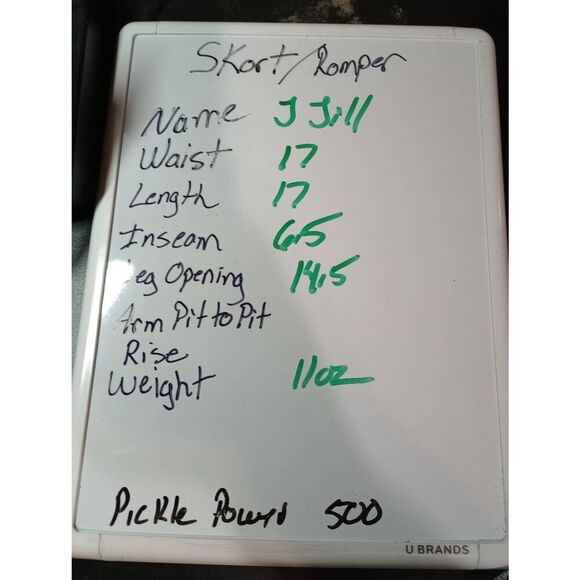 Skort/Romper
Name J Jill
Waist 17
Length 17
Inseam 6.5
Leg Opening 14.5
Arm Pit to Pit
Rise
Weight 11oz
Pickle Power 500
U BRANDS